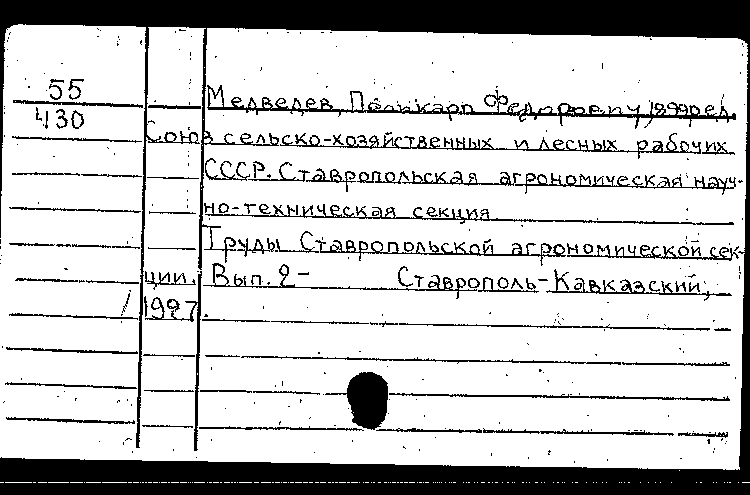 55
Медведев, Поликарп Федорович, 1899 ред.
430
Союз сельско-хозяйственных и лесных рабочих
СССР. Ставропольская агрономическая науч-
но-техническая секция
Труды Ставропольской агрономической сек-
ции. Вып. 2- Ставрополь-Кавказский,
1927.